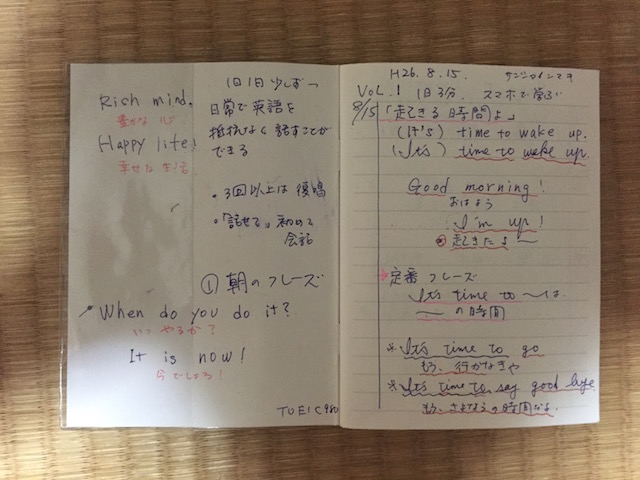 Rich mind.
豊かな心
Happy life!
幸せな生活
1日1回少しずつ
日常で英語を
抵抗なく話すことが
できる
・3回以上は復唱
・「話せる」初めて
会話
① 朝のフレーズ
When do you do it?
いつやるか?
It is now!
らでしょう!
TOEIC 980
H26.8.15.
VoL.1 1日3分. スマホで学ぶ
8/15 「起きる時間よ」
(It's) time to wake up.
(It's) time to wake up.
Good morning!
おはよう
I'm up!
起きたよ〜
定番フレーズ
It's time to 〜は
〜の時間
※It's time to go
もう、行かなきゃ
※It's time to say good bye
もう、さよならの時間だよ